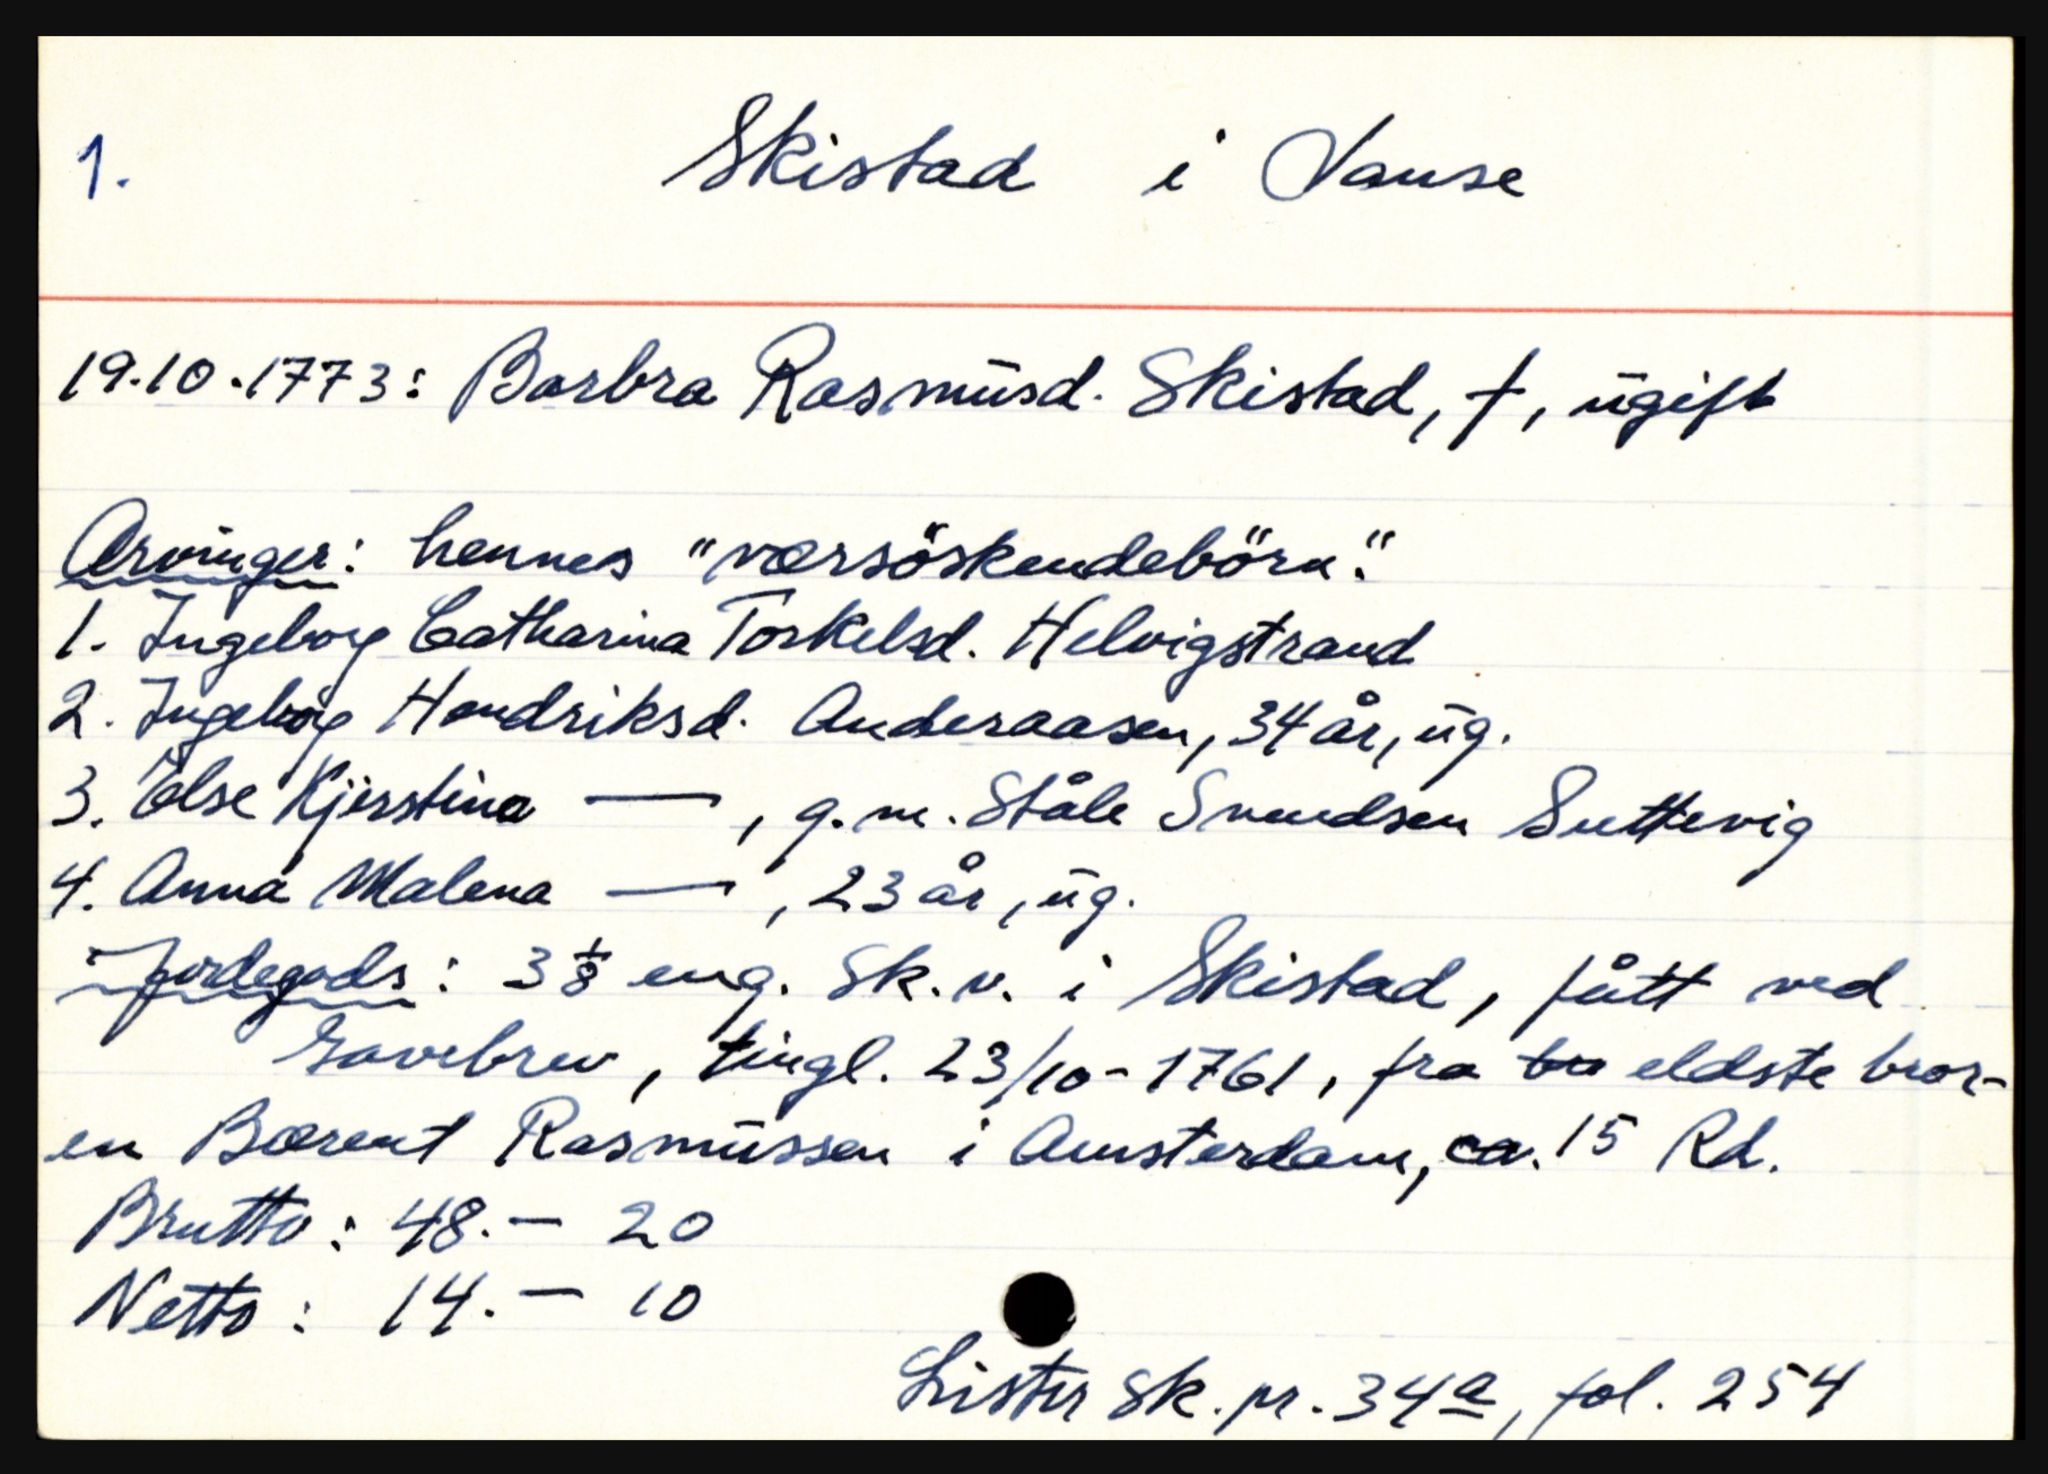 1. Skistad i Vanse
19.10.1773: Barbra Rasmusd. Skistad, †, ugift
Arvinger: hennes "værsöskendebörn".
1. Ingeborg Catharina Torkelsd. Helvigstrand
2. Ingeborg Hendriksd. Anderaasen, 34 år, ug.
3. Else Kjerstina —, g.m. Ståle Svendsen Suttevig
4. Anna Malena —, 23 år, ug.
Jordegods: 3 1/8 eng. Sk. v. i Skistad, fått ved
Gavebrev, tingl. 23/10-1761, fra eldste bror-
en Bærent Rasmussen i Amsterdam, ca. 15 Rd.
Brutto: 48.— 20
Netto: 14.— 10
Lister Sk. pr. 34a, fol. 254